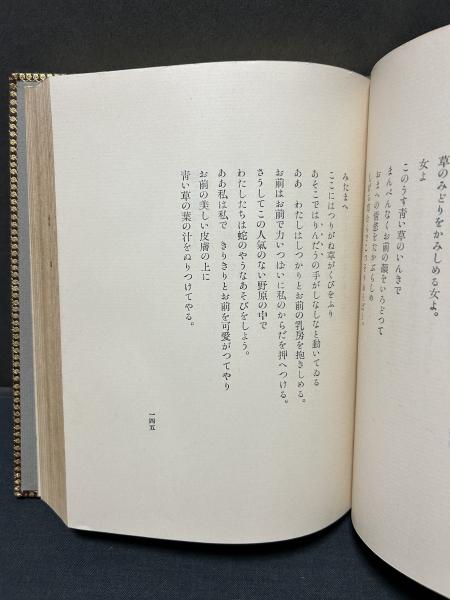 草のみどりをかみしめる女よ。
女よ
このうす青い草のいんきで
まんべんなくお前の顔をいろどつて
おまへの情慾をたかぶらしめ
みたまへ
ここにはつりがね草がくびをふり
あそこではりんだうの手がしなしなと動いてゐる
ああ わたしはしつかりとお前の乳房を抱きしめる。
お前はお前で力いつぱいに私のからだを押へつける。
さうしてこの人氣のない野原の中で
わたしたちは蛇のやうなあそびをしよう。
ああ私は私で きりきりとお前を可愛がつてやり
お前の美しい皮膚の上に
青い草の葉の汁をぬりつけてやる。
一四五